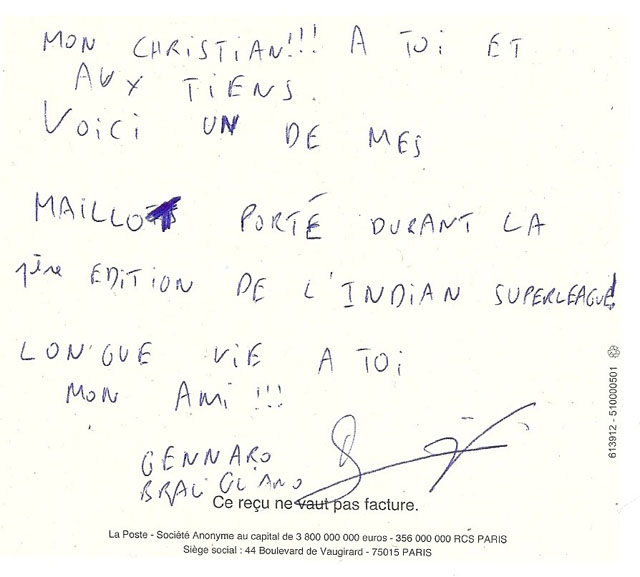 MON CHRISTIAN!!! A TOI ET
AUX TIENS.
VOICI UN DE MES
MAILLOTS PORTÉ DURANT LA
1ère EDITION DE L'INDIAN SUPERLEAGUE!
LONGUE VIE A TOI
MON AMI !!!
GENNARO
BRACIGLIANO
Ce reçu ne vaut pas facture.
La Poste - Société Anonyme au capital de 3 800 000 000 euros - 356 000 000 RCS PARIS
Siège social : 44 Boulevard de Vaugirard - 75015 PARIS
613912 - 510000501